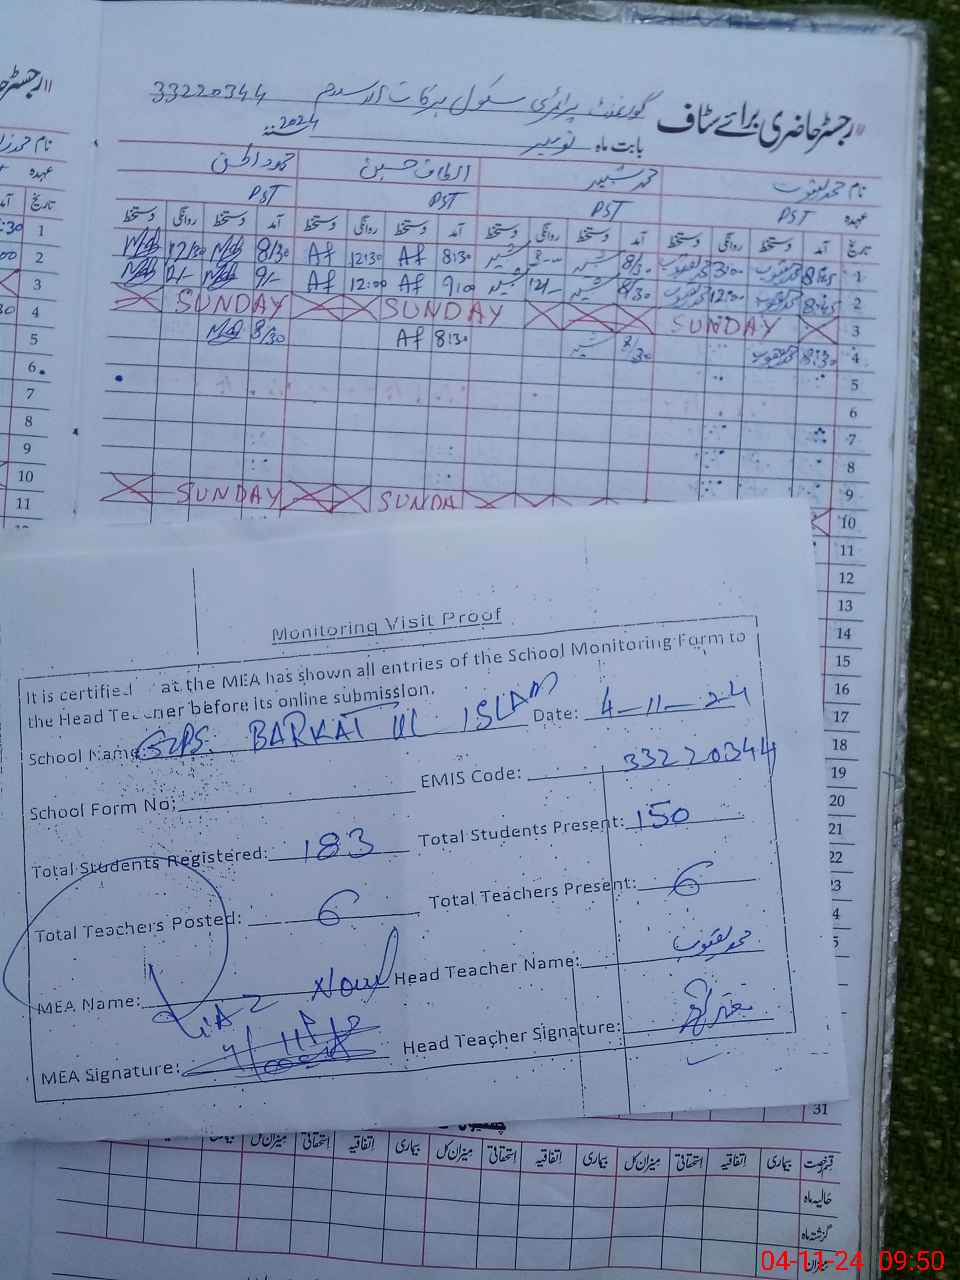 "رجسٹر حاضری برائے سٹاف
گورنمنٹ پرائمری سکول برکات الاسلام 33220344
بابت ماہ نومبر 2024
نام محمد یعقوب محمد شبیر الطاف حسین محمود الحسن
عہدہ PST PST PST PST
تاریخ آمد دستخط روانگی دستخط آمد دستخط روانگی دستخط آمد دستخط روانگی دستخط آمد دستخط روانگی دستخط
1 8:45 محمد یعقوب 3:00 محمد یعقوب 8/30 شبیر شبیر 8:30 Af 12:30 Af 8/30 12/30
2 8:45 محمد یعقوب 12:00 محمد یعقوب 8/30 شبیر 12/- شبیر 9:0 Af 12:00 Af 9/-
3 SUNDAY SUNDAY SUNDAY
4 8:30 محمد یعقوب 8/30 شبیر 8:30 Af 8/30
5
6
7
8
9
10 SUNDA SUNDAY
11
12
13
14
15
16
17
18
19
20
21
22
23
Monitoring Visit Proof
It is certified at the MEA has shown all entries of the School Monitoring Form to
the Head Teacher before its online submission.
School Name: GPS. BARKAT UL ISLAM Date: 4-11-24
School Form No: EMIS Code: 33220344
Total Students Registered: 183 Total Students Present: 150
Total Teachers Posted: 6 Total Teachers Present: 6
MEA Name: Head Teacher Name: محمد یعقوب
MEA Signature: Head Teacher Signature:
31
قسم رخصت بیماری اتفاقیہ استحقاقی میزان کل بیماری اتفاقیہ استحقاقی میزان کل بیماری اتفاقیہ استحقاقی میزان کل
حالیہ ماہ
گزشتہ ماہ
میزان
04-11-24 09:50